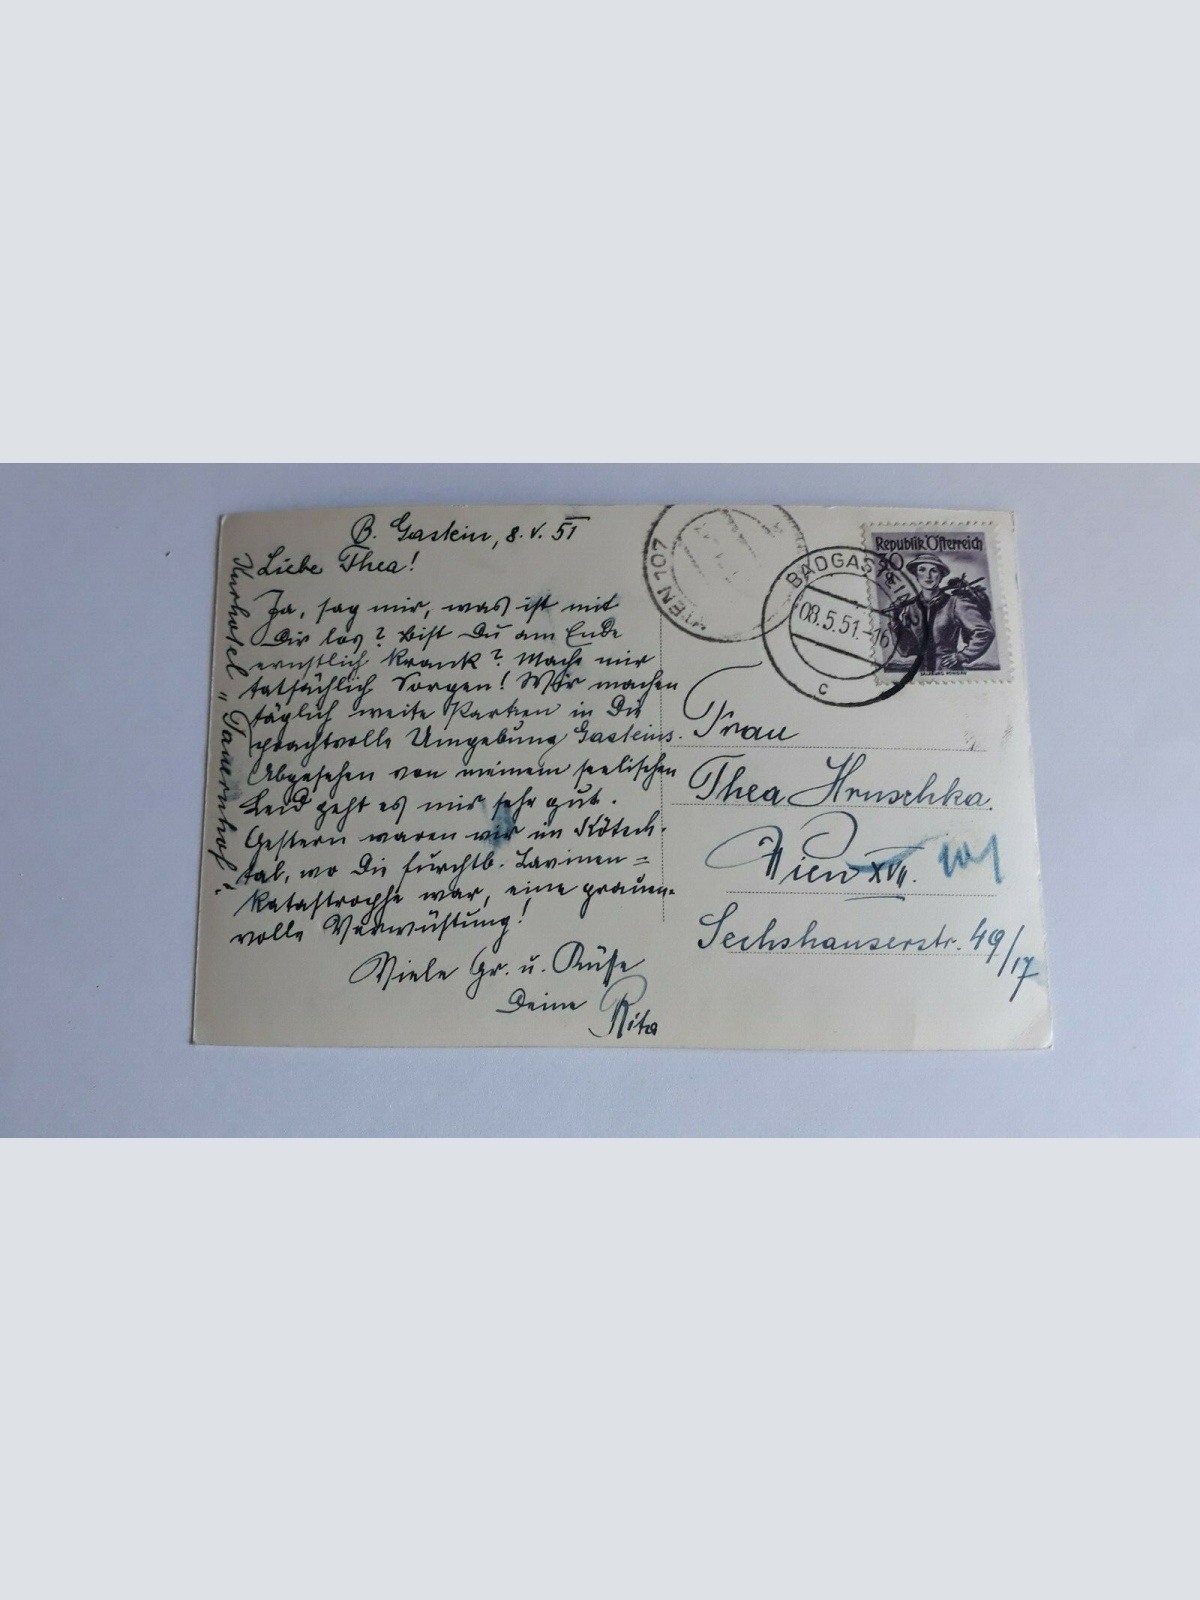 B. Gastein, 8. V. 51
Liebe Thea!
Ja, sag mir, was ist mit
Dir los? Bist Du am Ende
ernstlich krank? Mache mir
tatsächlich Sorgen! Wir machen
täglich weite Partien in die
prachtvolle Umgebung Gasteins.
Abgesehen von meinem seelischen
Leid geht es mir sehr gut.
Gestern waren wir im Kötsch-
tal, wo die furchtb. Lavinen=
katastrophe war, eine grauen-
volle Verwüstung!
Viele Gr. u. Küsse
Deine Rita
Kurhotel „Tauernhof"
WIEN 107
BADGASTEIN 2
08.5.51.-16
c
Republik Österreich
30
Frau
Thea Hruschka
Wien XVII. 101
Sechshauserstr. 49/17